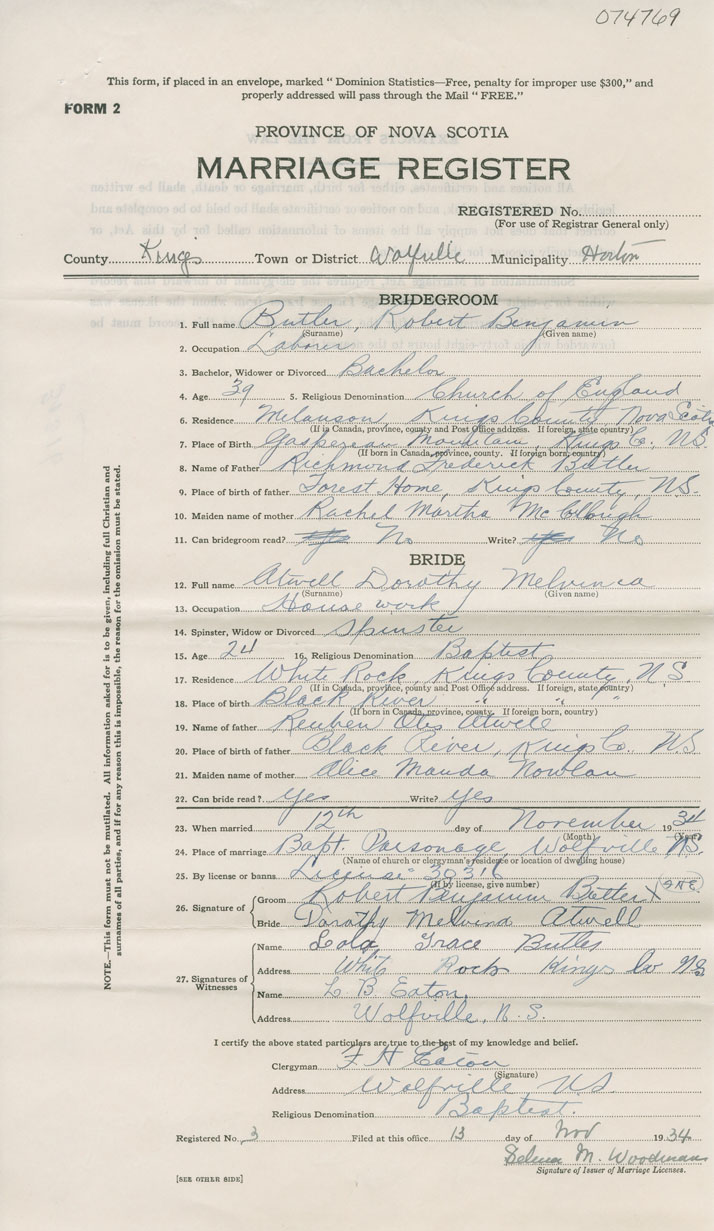 074769
This form, if placed in an envelope, marked " Dominion Statistics—Free, penalty for improper use $300," and
properly addressed will pass through the Mail " FREE."
FORM 2
PROVINCE OF NOVA SCOTIA
MARRIAGE REGISTER
REGISTERED No.
(For use of Registrar General only)
County Kings Town or District Wolfville Municipality Horton
BRIDEGROOM
1. Full name Butler, Robert Benjamin
(Surname) (Given name)
2. Occupation Laborer
3. Bachelor, Widower or Divorced Bachelor
4. Age 39 5. Religious Denomination Church of England
6. Residence Melanson Kings County Nova Scotia
(If in Canada, province, county and Post Office address. If foreign, state country)
7. Place of Birth Gaspereau Mountain, Kings Co. N.S.
(If born in Canada, province, county. If foreign born, country)
8. Name of Father Richmond Frederick Butler
9. Place of birth of father Forest Home, Kings County, N.S.
10. Maiden name of mother Rachel Martha
11. Can bridegroom read? No Write? No
BRIDE
12. Full name Atwell Dorothy Melvinea
(Surname) (Given name)
13. Occupation House work
14. Spinster, Widow or Divorced Spinster
15. Age 24 16. Religious Denomination Baptist
17. Residence White Rock, Kings County, N.S
(If in Canada, province, county and Post Office address. If foreign, state country)
18. Place of birth Black River " " "
(If born in Canada, province, county. If foreign born, country)
19. Name of father Reuben Otis Atwell
20. Place of birth of father Black River, Kings Co. N.S
21. Maiden name of mother Alice Manda Nowlan
22. Can bride read? Yes Write? Yes
23. When married 12th day of November 1934
(Month) (Year)
24. Place of marriage Bapt. Parsonage, Wolfville N.S.
(Name of church or clergyman's residence or location of dwelling house)
25. By license or banns License 30316
(If by license, give number)
26. Signature of
Groom Robert Benjamin Butler X
Bride Dorothy Melvina Atwell
27. Signatures of Witnesses
Name Lola Grace Butler
Address White Rock Kings Co NS
Name L. B. Eaton,
Address Wolfville, N.S.
I certify the above stated particulars are true to the best of my knowledge and belief.
Clergyman F H Eaton
(Signature)
Address Wolfville, N.S
Religious Denomination Baptist.
Registered No. 3 Filed at this office 13 day of Nov 1934
Selena M. Woodman
Signature of Issuer of Marriage Licenses.
[SEE OTHER SIDE]
NOTE.—This form must not be mutilated. All information asked for is to be given, including full Christian and
surnames of all parties, and if for any reason this is impossible, the reason for the omission must be stated.